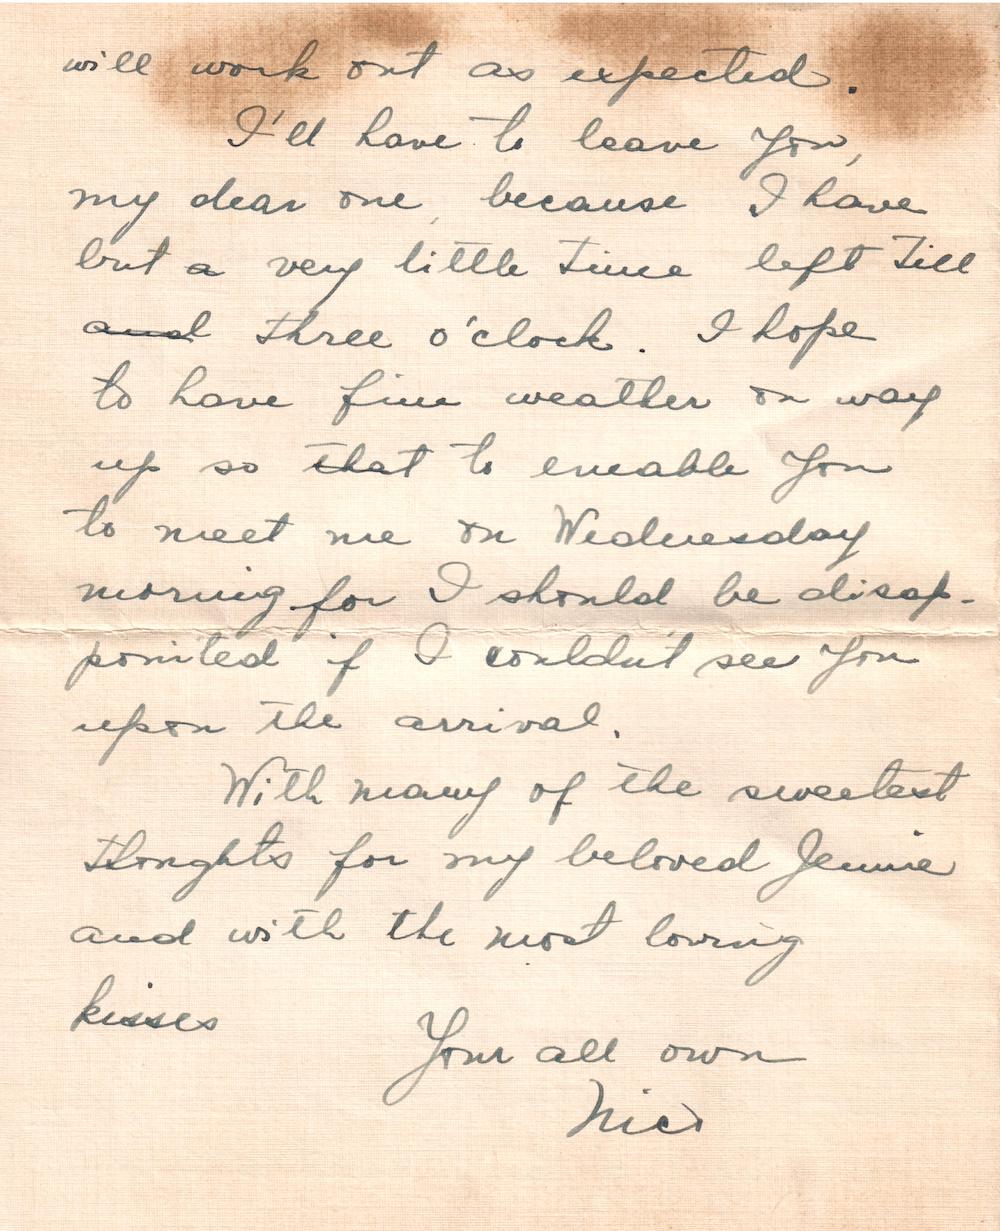 will work out as expected.
I'll have to leave you,
my dear one, because I have
but a very little time left till
and three o'clock. I hope
to have fine weather on way
up so that to eneable you
to meet me on Wednesday
morning for I should be disap-
pointed if I couldn't see you
upon the arrival.
With many of the sweetest
thoughts for my beloved Jennie
and with the most loving
kisses
Your all own
Nick